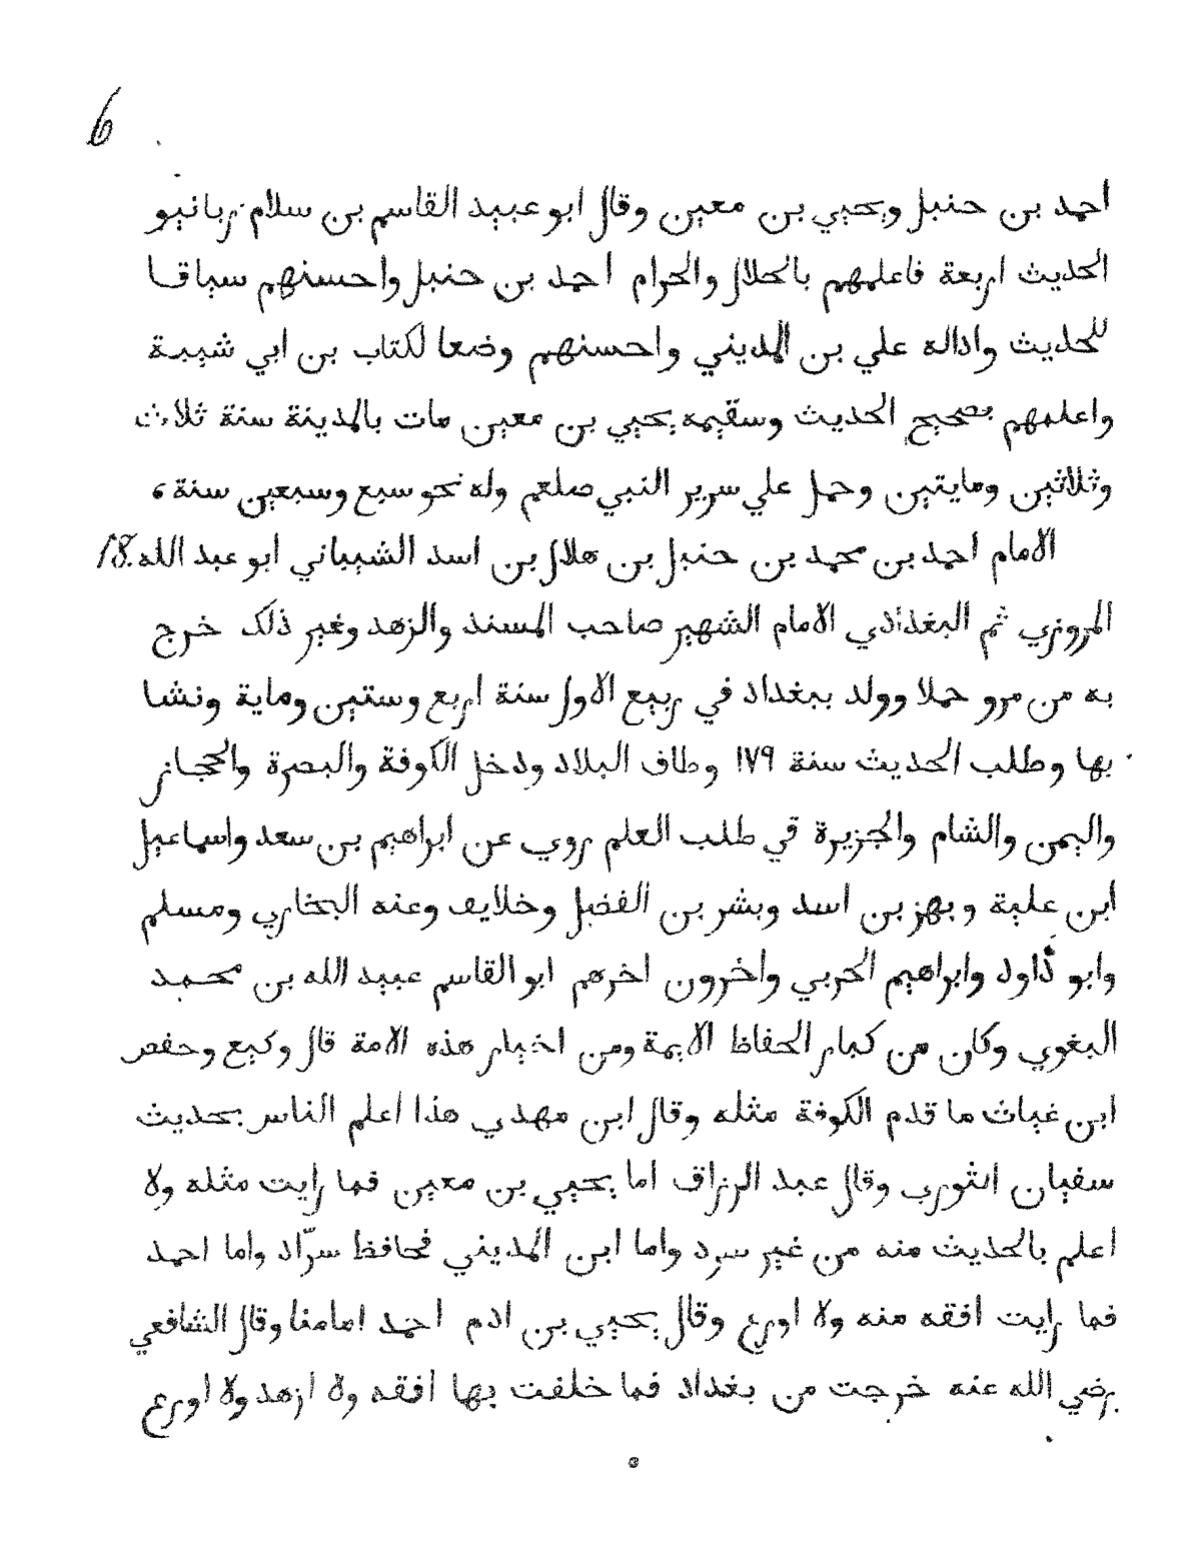 6
احمد بن حنبل ويحيي بن معين وقال ابو عبيد القاسم بن سلام ربانيو
الحديث اربعة فاعلمهم بالحلال والحرام احمد بن حنبل واحسنهم سياقا
للحديث واداله علي بن المديني واحسنهم وضعا لكتاب بن ابي شيبة
واعلمهم بصحيح الحديث وسقيمه يحيي بن معين مات بالمدينة سنة ثلاث
وثلاثين ومايتين وحمل علي سرير النبي صلعم وله نحو سبع وسبعين سنة،
الامام احمد بن محمد بن حنبل بن هلال بن اسد الشيباني ابو عبد الله .18
المروزي ثم البغدادي الامام الشهير صاحب المسند والزهد وغير ذلك خرج
به من مرو حملا وولد ببغداد في ربيع الاول سنة اربع وستين وماية ونشا
بها وطلب الحديث سنة ١٧٩ وطاف البلاد ودخل الكوفة والبصرة والحجاز
واليمن والشام والجزيرة في طلب العلم روي عن ابراهيم بن سعد واسماعيل
ابن علية وبهز بن اسد وبشر بن الفضل وخلايف وعنه البخاري ومسلم
وابو داود وابراهيم الحربي واخرون اخرهم ابو القاسم عبيد الله بن محمد
البغوي وكان من كبار الحفاظ الايمة ومن اخيار هذه الامة قال وكيع وحفص
ابن غياث ما قدم الكوفة مثله وقال ابن مهدي هذا اعلم الناس بحديث
سفيان الثوري وقال عبد الرزاق اما يحيي بن معين فما رايت مثله ولا
اعلم بالحديث منه من غير سرد واما ابن المديني فحافظ سرّاد واما احمد
فما رايت افقه منه ولا اورع وقال يحيي بن ادم احمد امامنا وقال الشافعي
رضي الله عنه خرجت من بغداد فما خلفت بها افقه ولا ازهد ولا اورع